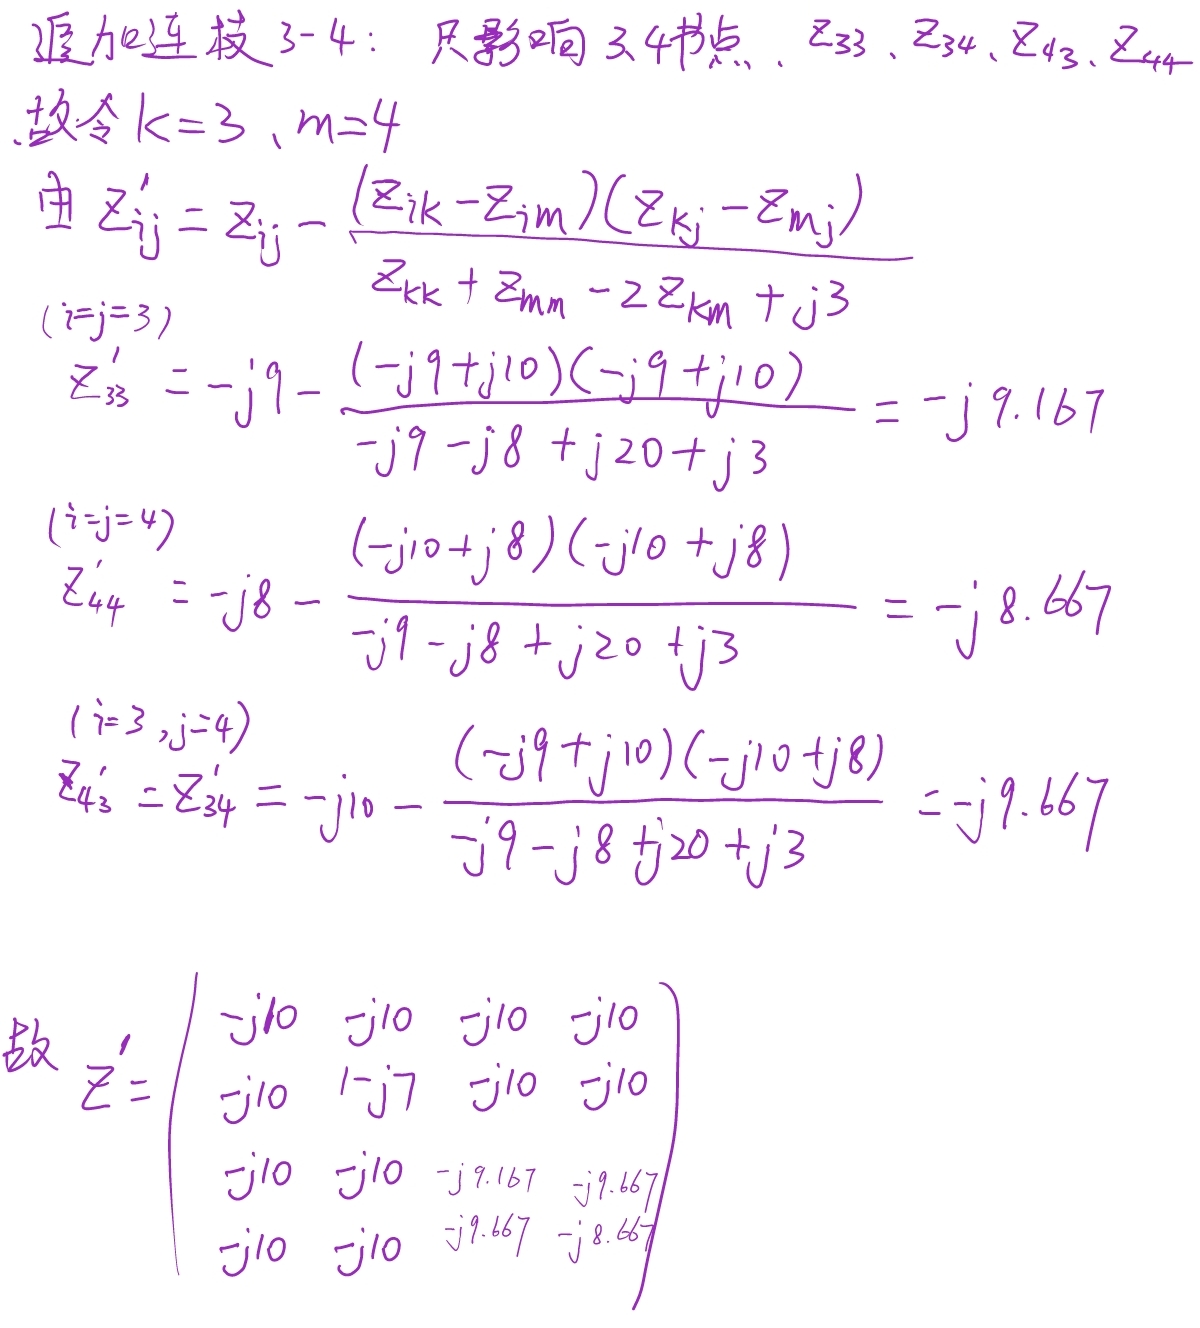 追加连枝3-4: 只影响3、4节点、Z33、Z34、Z43、Z44
故令k=3、m=4
由 Z'ij = Zij - (Zik-Zim)(Zkj-Zmj) / (Zkk+Zmm-2Zkm+j3)
(i=j=3)
Z'33 = -j9 - (-j9+j10)(-j9+j10) / (-j9-j8+j20+j3) = -j9.167
(i=j=4)
Z'44 = -j8 - (-j10+j8)(-j10+j8) / (-j9-j8+j20+j3) = -j8.667
(i=3,j=4)
Z'43 = Z'34 = -j10 - (-j9+j10)(-j10+j8) / (-j9-j8+j20+j3) = -j9.667
故 Z' =
-j10 -j10 -j10 -j10
-j10 1-j7 -j10 -j10
-j10 -j10 -j9.167 -j9.667
-j10 -j10 -j9.667 -j8.667